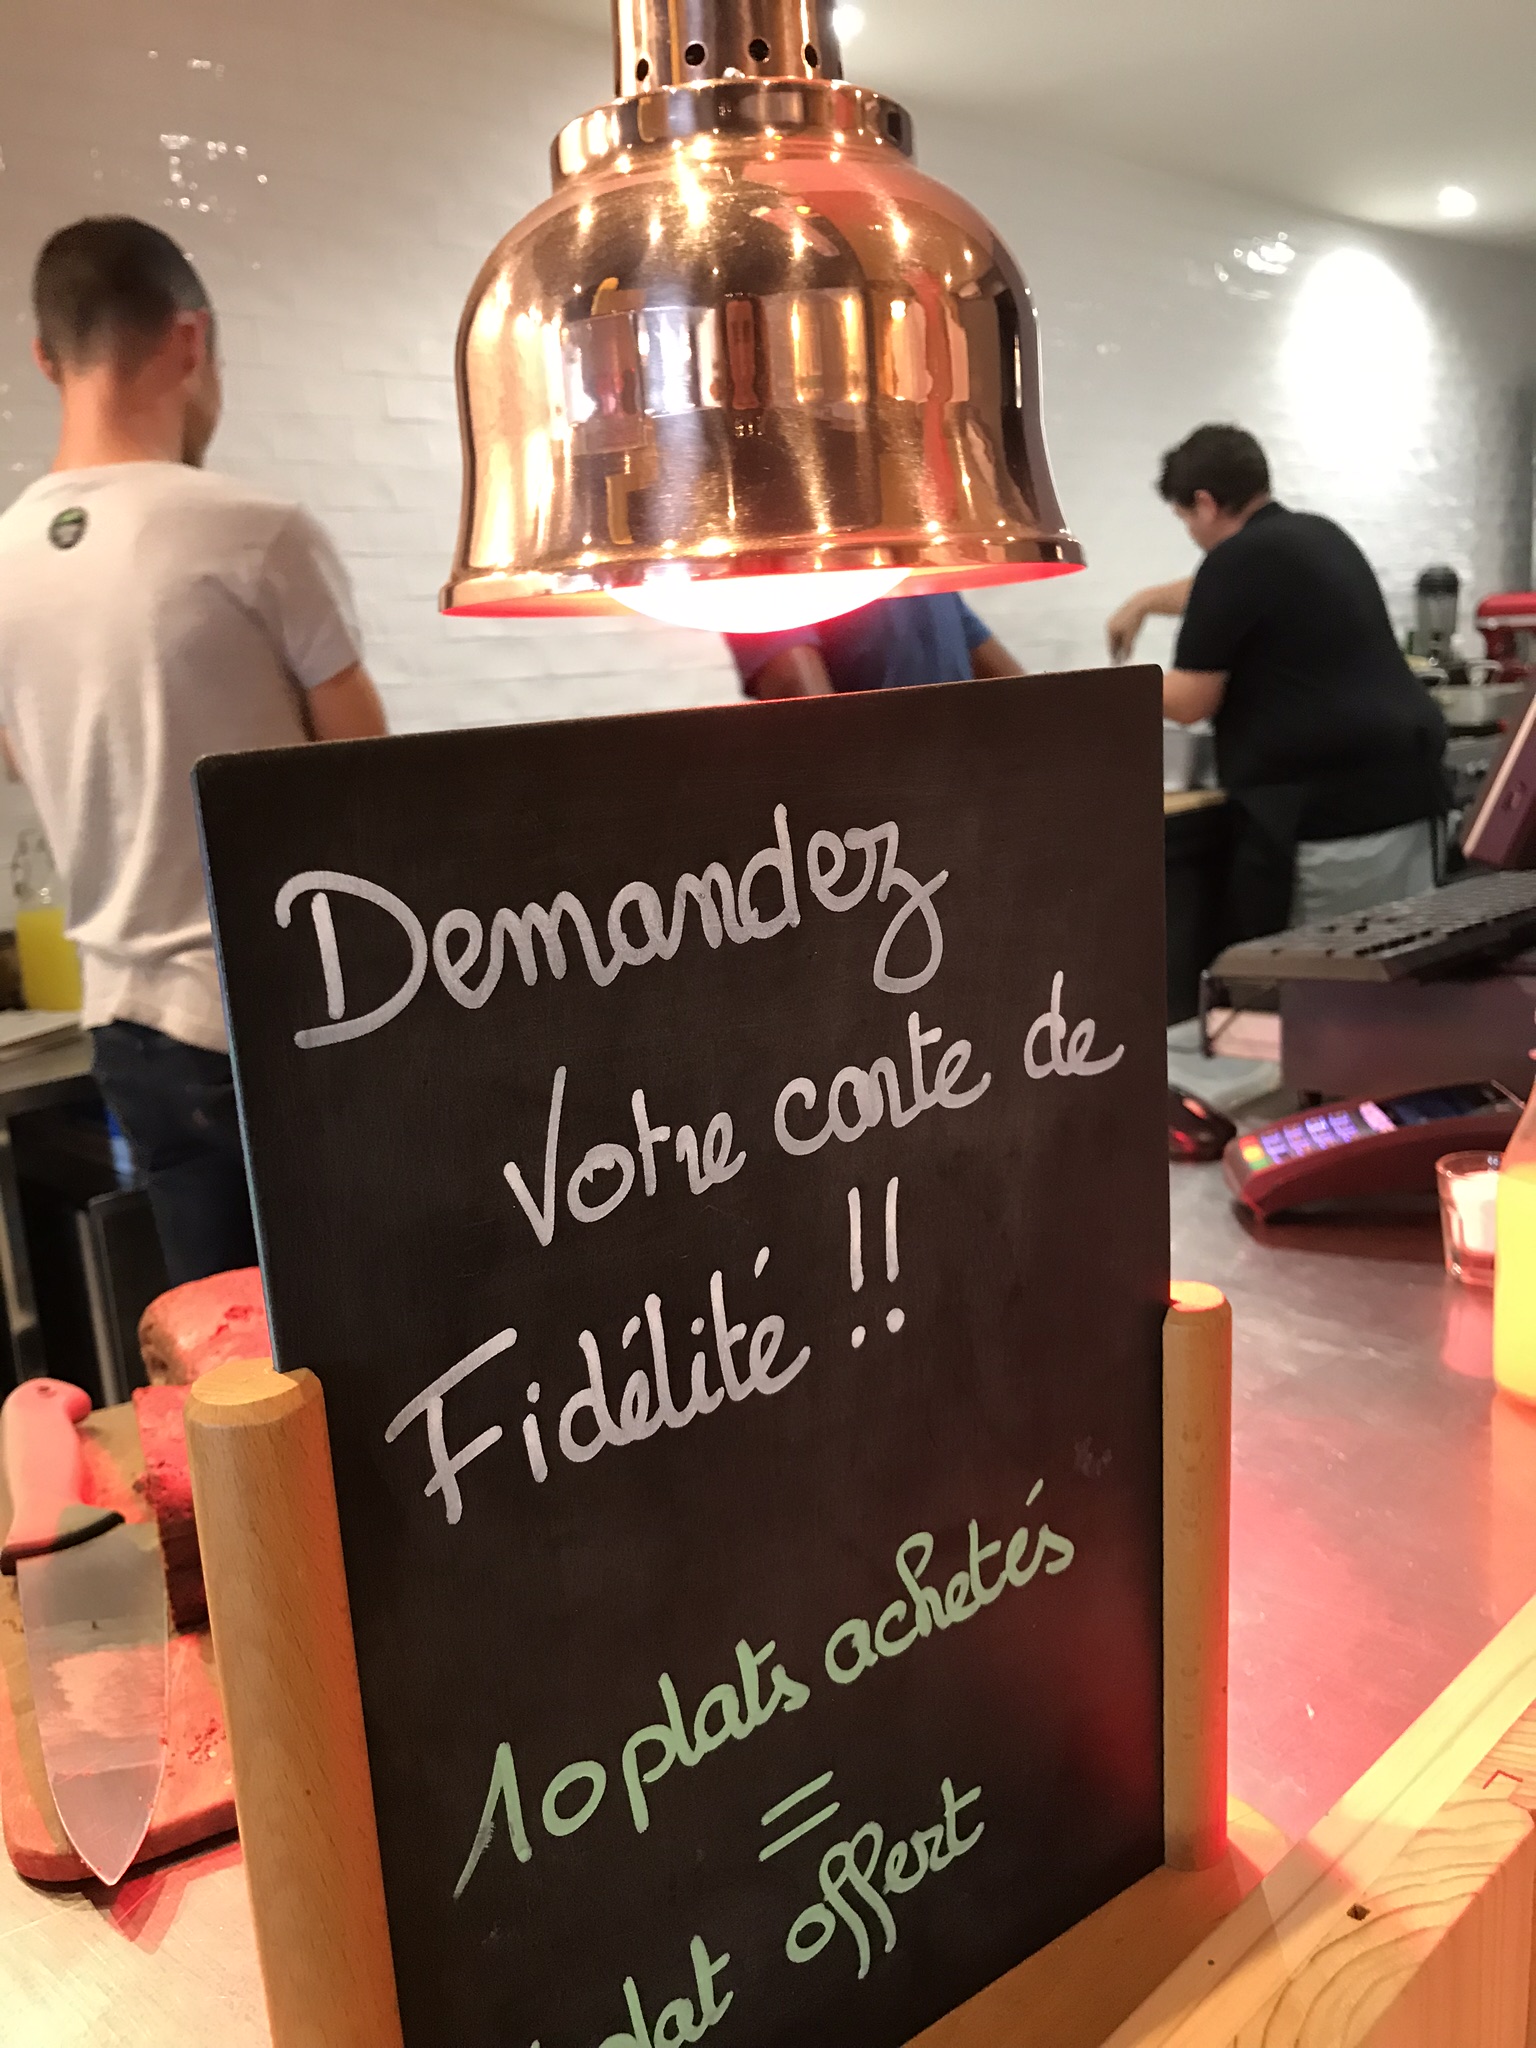 Demandez
Votre carte de
Fidélité !!
10 plats achetés
=
plat offert